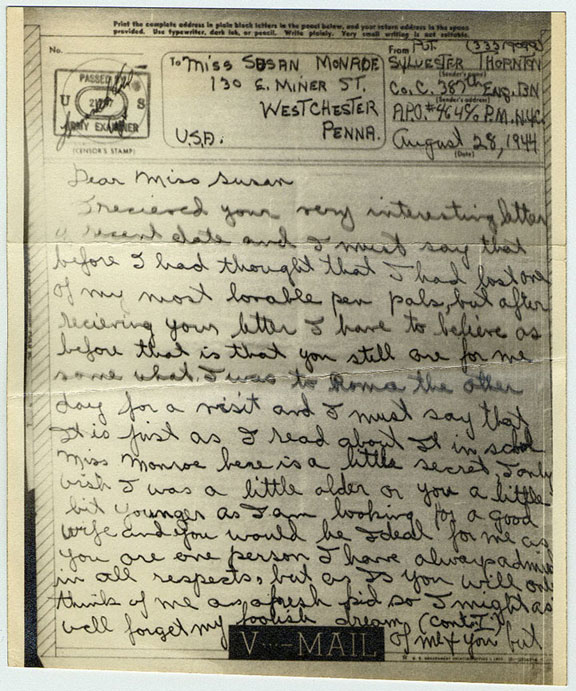 Print the complete address in plain block letters in the panel below, and your return address in the space
provided. Use typewriter, dark ink, or pencil. Write plainly. Very small writing is not suitable.
No.
PASSED BY
U S
ARMY EXAMINER
(CENSOR'S STAMP)
To Miss SUSAN MONROE
130 E. MINER ST.
WESTCHESTER
PENNA.
U.S.A.
From PVT.
SYLVESTER THORNTON
(Sender's name)
Co. C. 387th ENG. BN
(Sender's address)
A.P.O. #464 % P.M. N.Y.C.
August 28, 1944
(Date)
Dear Miss Susan
I recieved your very interesting letter
recent date and I must say that
before I had thought that I had lost one
of my most lovable pen pals, but after
recieving your letter I have to believe as
before that is that you still are for me
some what. I was to Roma the other
day for a visit and I must say that
It is just as I read about It in school
Miss Monroe here is a little secret I only
wish I was a little older or you a little
bit younger as I am looking for a good
wife and you would be Ideal for me as
you are one person I have always admir
in all respects, but as Is you will only
think of me as a fresh kid so I might as
well forget my foolish dream (Cont'd)
of me & you but
V···—MAIL